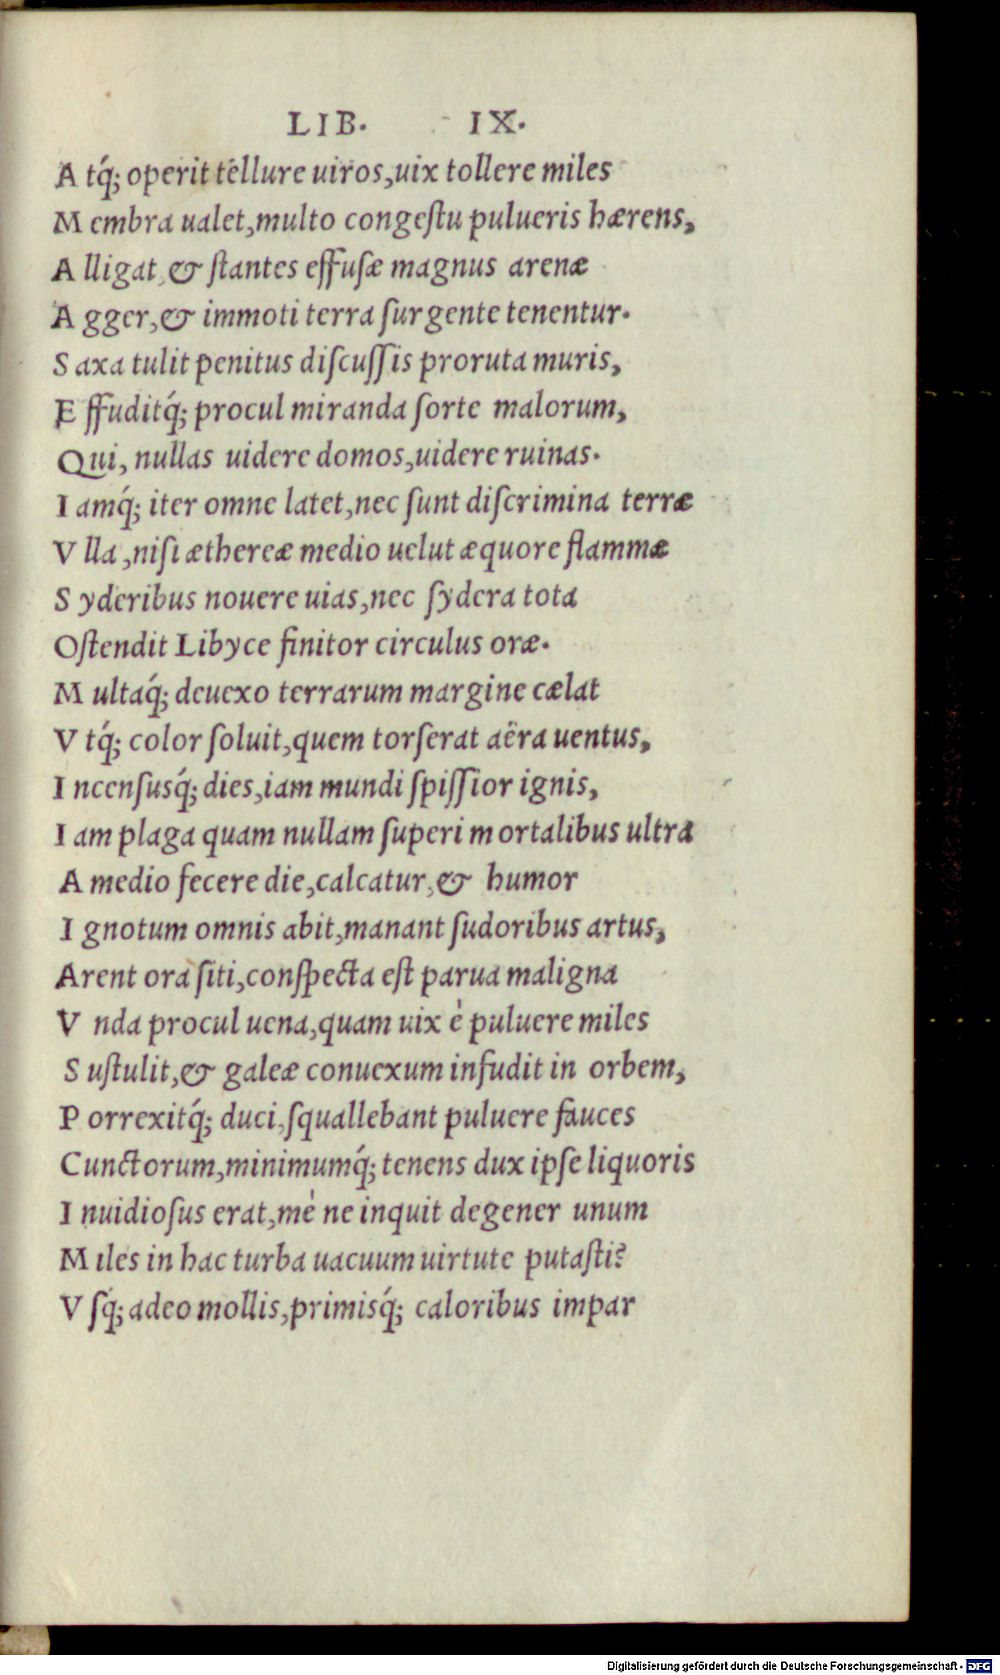 LIB. IX.
A tq́; operit tellure uiros,uix tollere miles
M embra ualet,multo congeſtu pulueris hærens,
A lligat,& ſtantes effuſæ magnus arenæ
A gger,& immoti terra ſurgente tenentur.
S axa tulit penitus diſcuſſis proruta muris,
E ffuditq́; procul miranda ſorte malorum,
Qui, nullas uidere domos,uidere ruinas.
I amq́; iter omne latet,nec ſunt diſcrimina terræ
V lla ,niſi æthereæ medio uelut æquore flammæ
S yderibus nouere uias,nec ſydera tota
Oſtendit Libyce finitor circulus oræ.
M ultaq́; deuexo terrarum margine cælat
V tq́; color ſoluit,quem torſerat aëra uentus,
I ncenſusq́; dies,iam mundi ſpiſſior ignis,
I am plaga quam nullam ſuperi mortalibus ultra
A medio fecere die,calcatur,& humor
I gnotum omnis abit,manant ſudoribus artus,
Arent ora ſiti,conſpecta eſt parua maligna
V nda procul uena,quam uix è puluere miles
S uſtulit,& galeæ conuexum infudit in orbem,
P orrexitq́; duci,ſquallebant puluere fauces
Cunctorum,minimumq́; tenens dux ipſe liquoris
I nuidioſus erat,mè ne inquit degener unum
M iles in hac turba uacuum uirtute putaſti?
V ſq́; adeo mollis,primisq́; caloribus impar
Digitalisierung gefördert durch die Deutsche Forschungsgemeinschaft - DFG